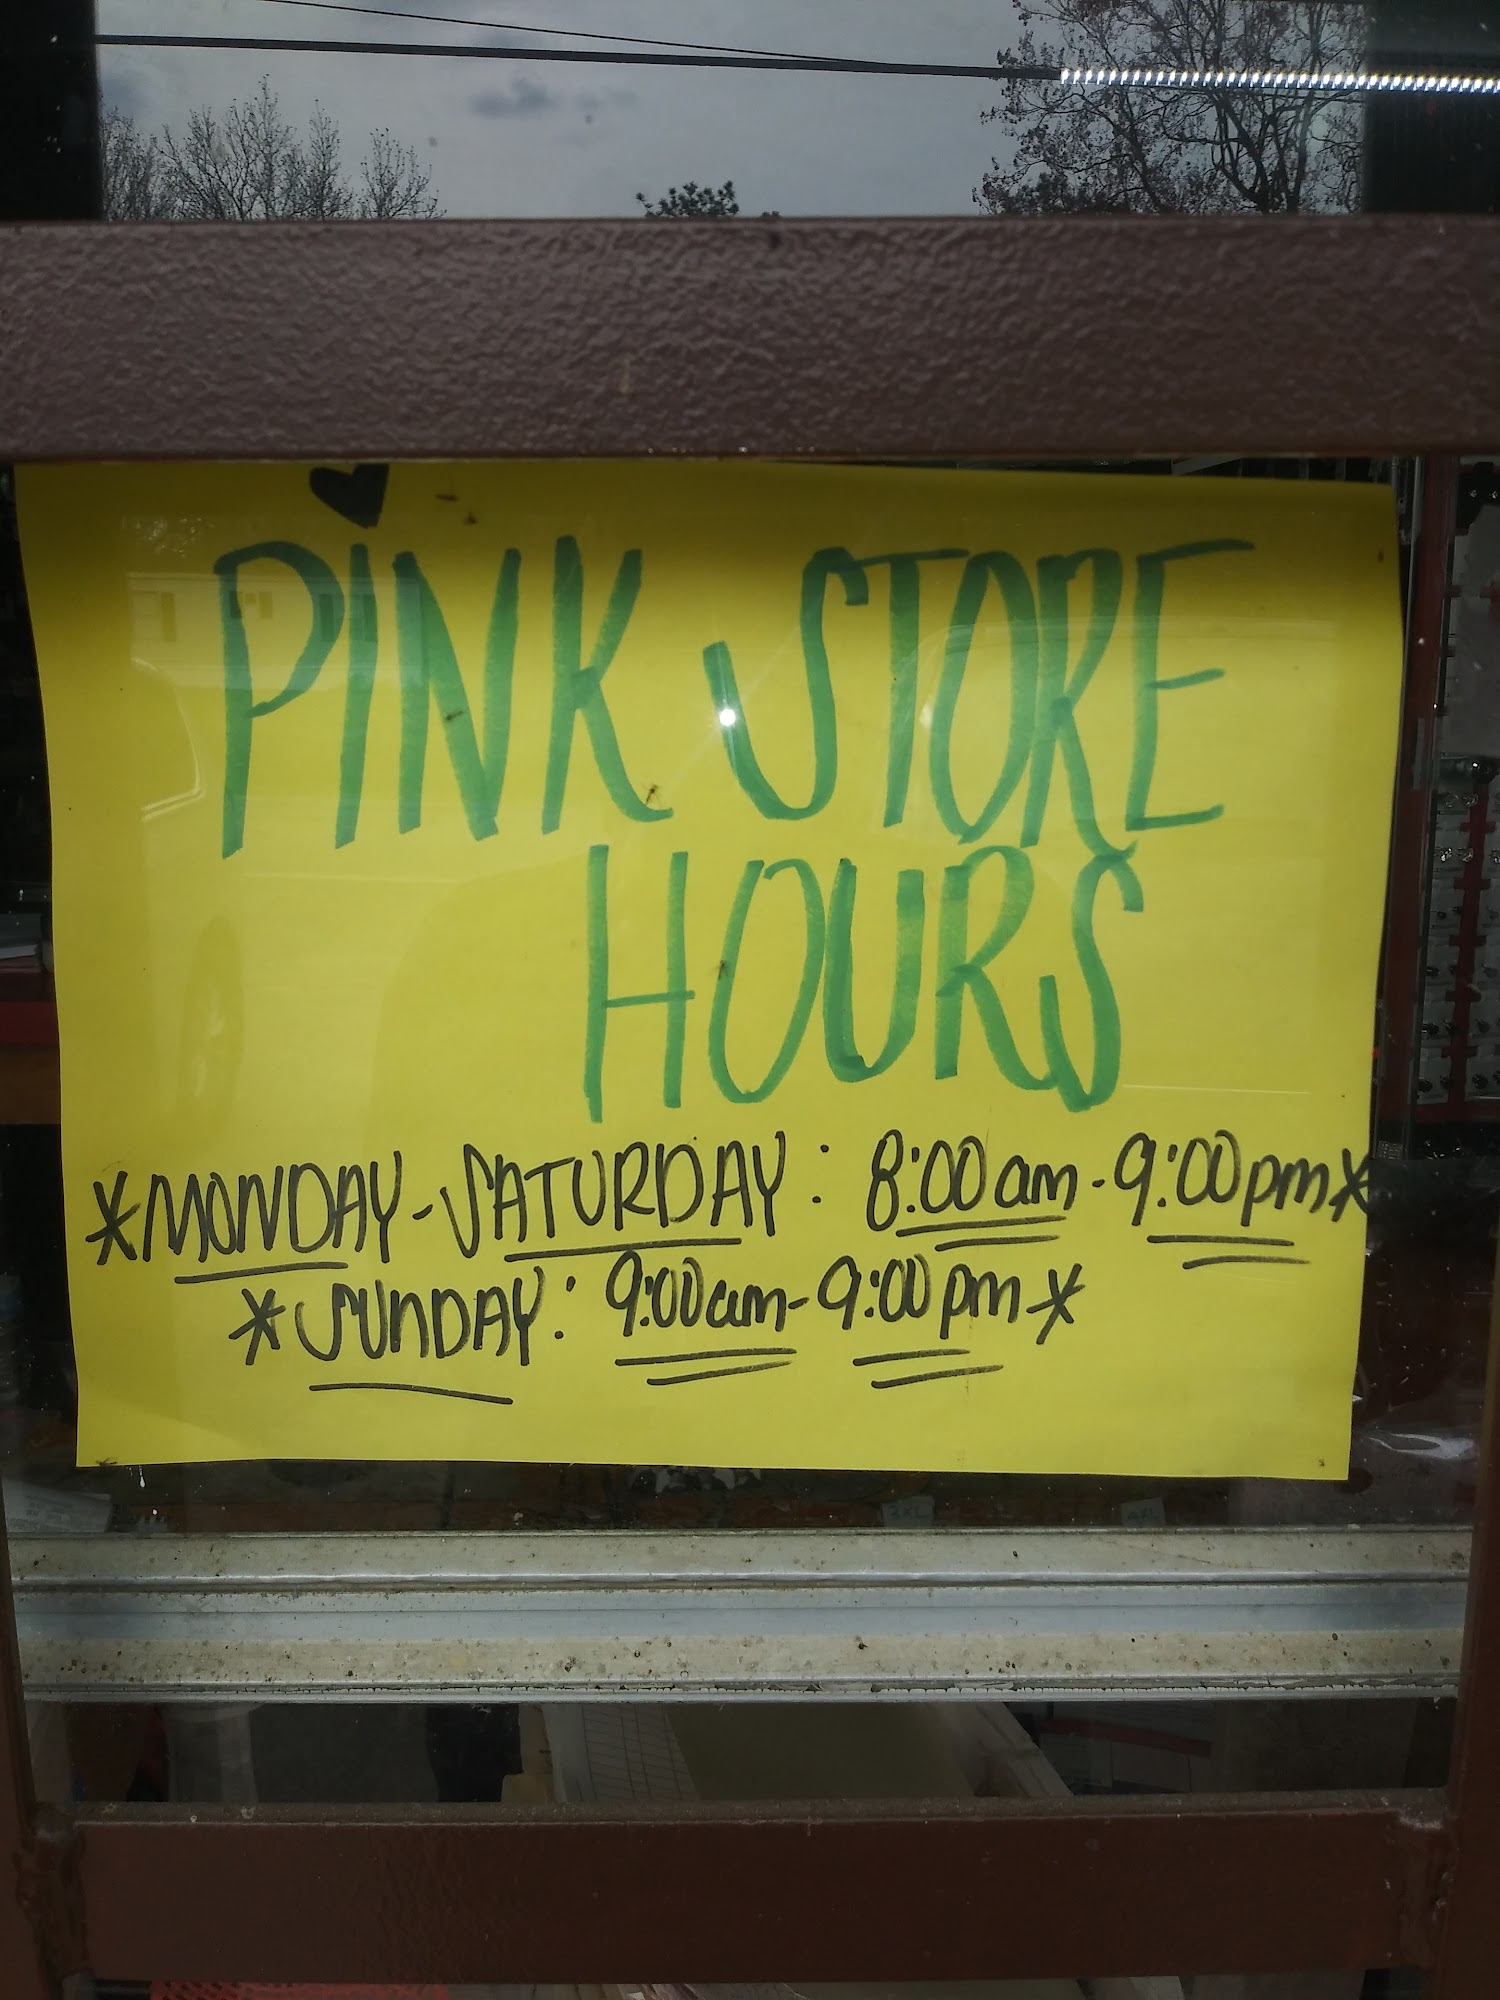 PiNK STORE
HOURS
*MONDAY-SATURDAY: 8:00am-9:00pm*
*SUNDAY: 9:00am-9:00pm*